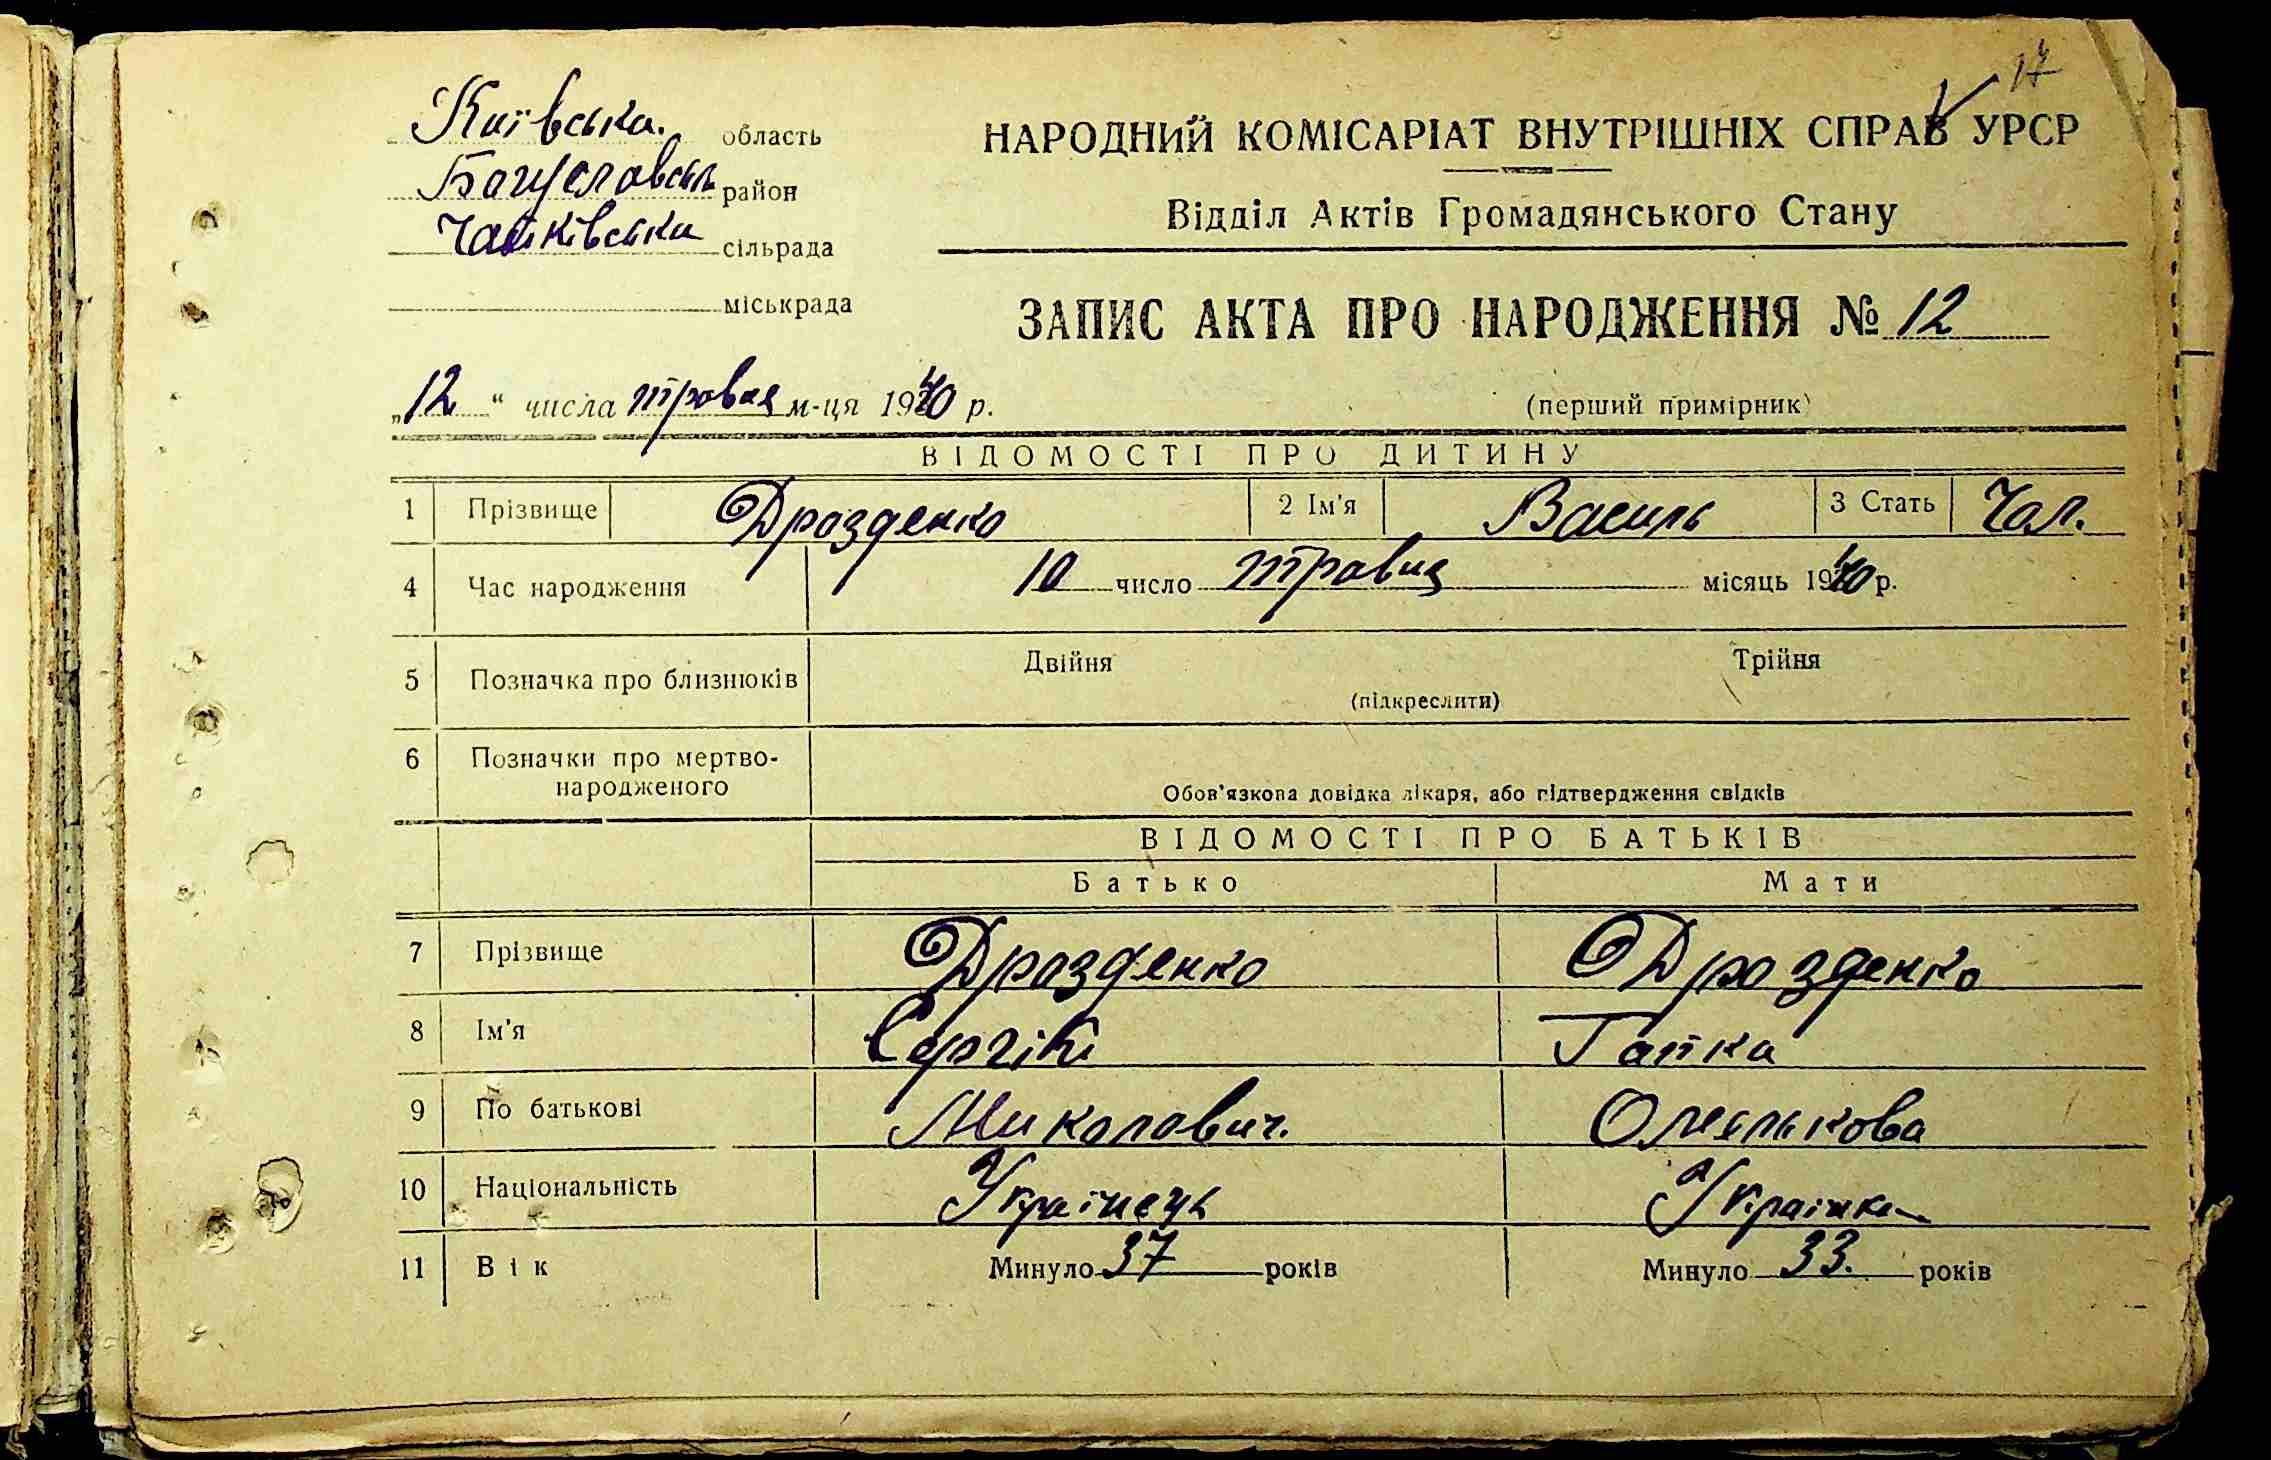 17
Київська. область
Богуславськ район
Чайківська сільрада
міськрада
НАРОДНИЙ КОМІСАРІАТ ВНУТРІШНІХ СПРАВ УРСР
Відділ Актів Громадянського Стану
ЗАПИС АКТА ПРО НАРОДЖЕННЯ № 12
„12“ числа травня м-ця 1940 р.
(перший примірник)
ВІДОМОСТІ ПРО ДИТИНУ
1 Прізвище Дрозденко 2 Ім'я Василь 3 Стать Чол.
4 Час народження 10 число травня місяць 1940 р.
5 Позначка про близнюків Двійня Трійня
(підкреслити)
6 Позначки про мертво-
народженого
Обов'язкова довідка лікаря, або підтвердження свідків
ВІДОМОСТІ ПРО БАТЬКІВ
Батько Мати
7 Прізвище Дрозденко Дрозденко
8 Ім'я Сергій Гапка
9 По батькові Миколович. Омелькова
10 Національність Українець Українка
11 Вік Минуло 37 років Минуло 33. років